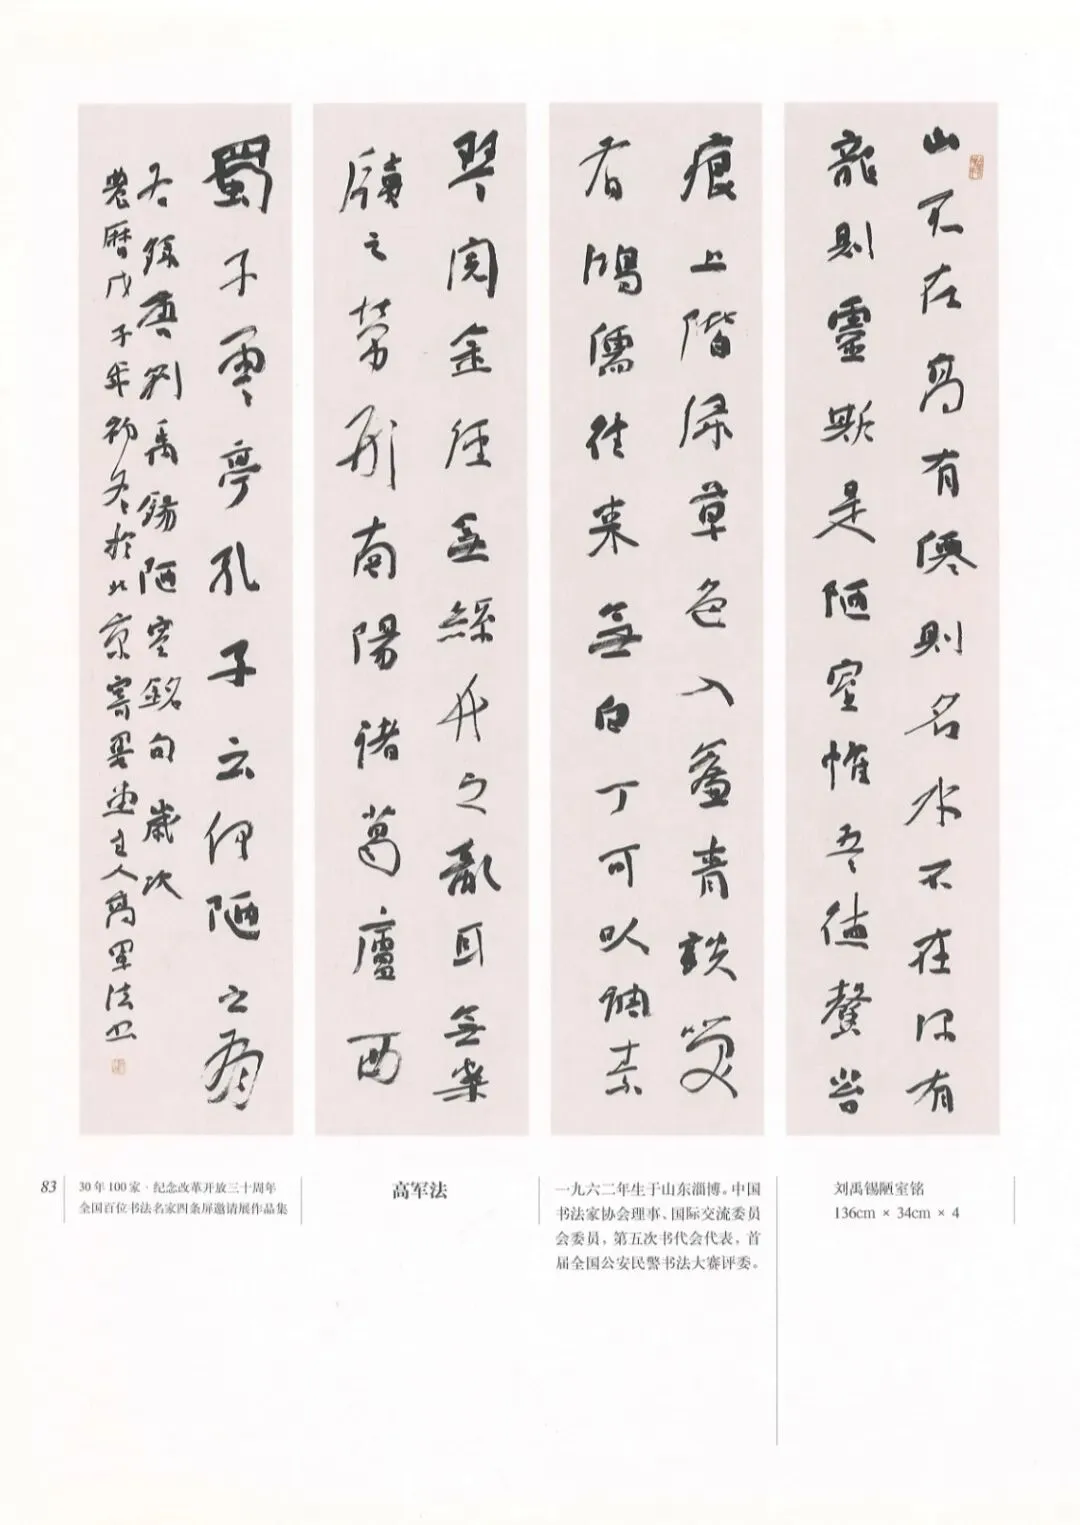 山不在高有僊則名水不在深有
龍則靈斯是陋室惟吾德馨苔
痕上階綠草色入簾青談笑
有鴻儒往來無白丁可以調素
琴閱金經無絲竹之亂耳無案
牘之勞形南陽諸葛廬西
蜀子雲亭孔子云何陋之有
右錄唐劉禹錫陋室銘句歲次
農曆戊子年初冬於北京寄墨堂主人高軍法書
83
30年100家·纪念改革开放三十周年
全国百位书法名家四条屏邀请展作品集
高军法
一九六二年生于山东淄博。中国
书法家协会理事、国际交流委员
会委员，第五次书代会代表，首
届全国公安民警书法大赛评委。
刘禹锡陋室铭
136cm × 34cm × 4